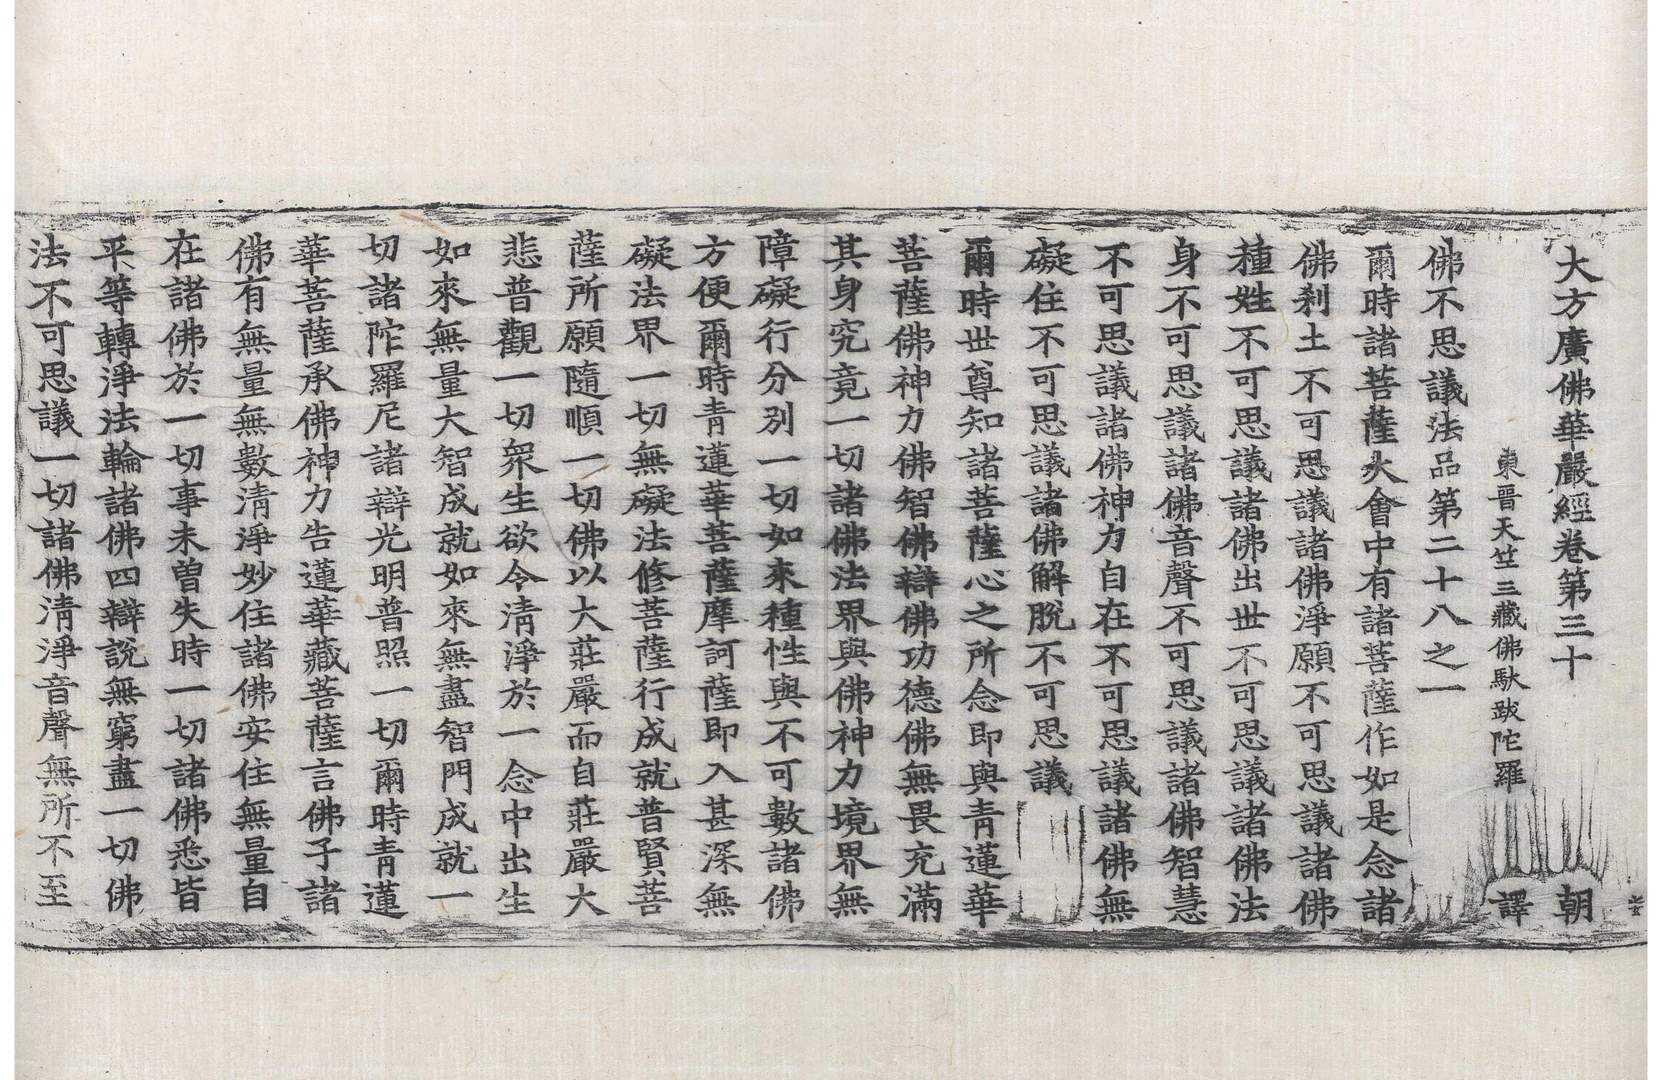 大方廣佛華嚴經卷第三十 朝
東晉天竺三藏佛馱跋陀羅 譯
佛不思議法品第二十八之一
爾時諸菩薩大會中有諸菩薩作如是念諸
佛刹土不可思議諸佛淨願不可思議諸佛
種姓不可思議諸佛出世不可思議諸佛法
身不可思議諸佛音聲不可思議諸佛智慧
不可思議諸佛神力自在不可思議諸佛無
礙住不可思議諸佛解脫不可思議
爾時世尊知諸菩薩心之所念即與青蓮華
菩薩佛神力佛智佛辯佛功德佛無畏充滿
其身究竟一切諸佛法界與佛神力境界無
障礙行分別一切如來種性與不可數諸佛
方便爾時青蓮華菩薩摩訶薩即入甚深無
礙法界一切無礙法修菩薩行成就普賢菩
薩所願隨順一切佛以大莊嚴而自莊嚴大
悲普觀一切眾生欲令清淨於一念中出生
如來無量大智成就如來無盡智門成就一
切諸陀羅尼諸辯光明普照一切爾時青蓮
華菩薩承佛神力告蓮華藏菩薩言佛子諸
佛有無量無數清淨妙住諸佛安住無量自
在諸佛於一切事未曾失時一切諸佛悉皆
平等轉淨法輪諸佛四辯說無窮盡一切佛
法不可思議一切諸佛清淨音聲無所不至